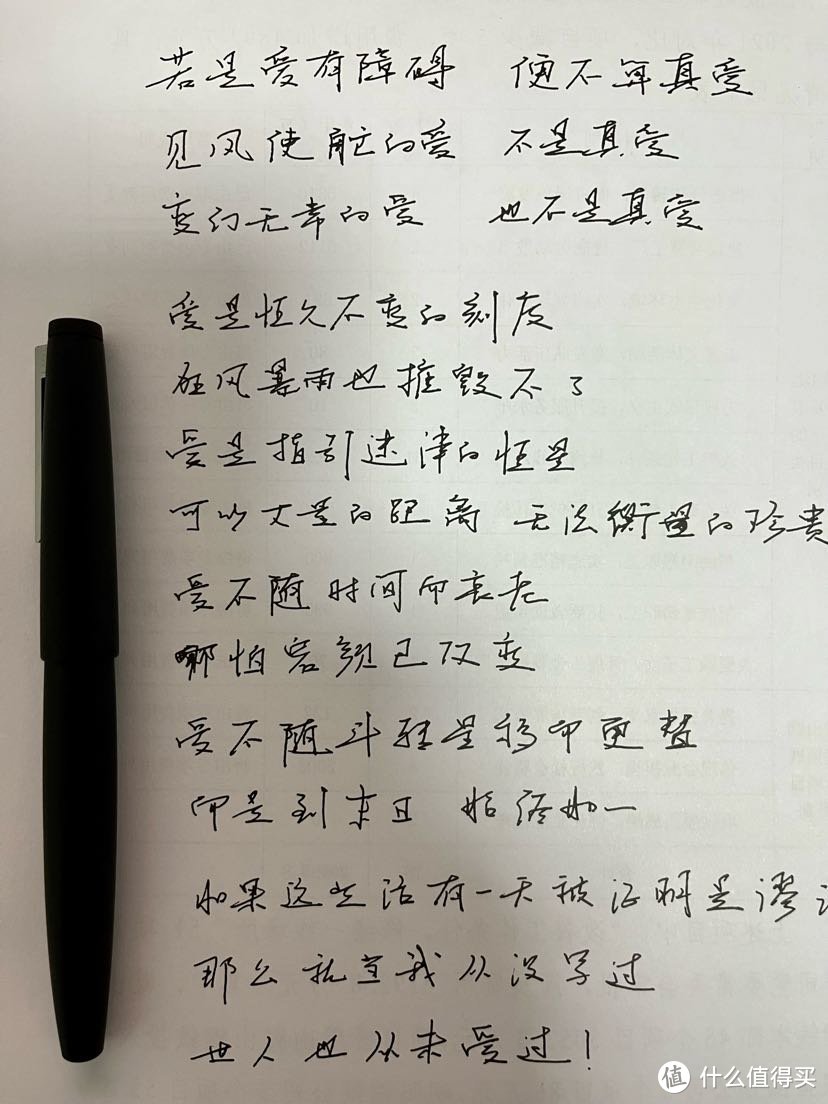 若是爱有障碍 便不算真爱
见风使舵的爱 不是真爱
变幻无常的爱 也不是真爱
爱是恒久不变的刻度
狂风暴雨也摧毁不了
爱是指引迷津的恒星
可以丈量的距离 无法衡量的珍贵
爱不随时间而衰老
哪怕容颜已改变
爱不随斗转星移而更替
而是到末日 始终如一
如果这些话有一天被证明是谬
那么就当我从没写过
世人也从未爱过！
值 什么值得买